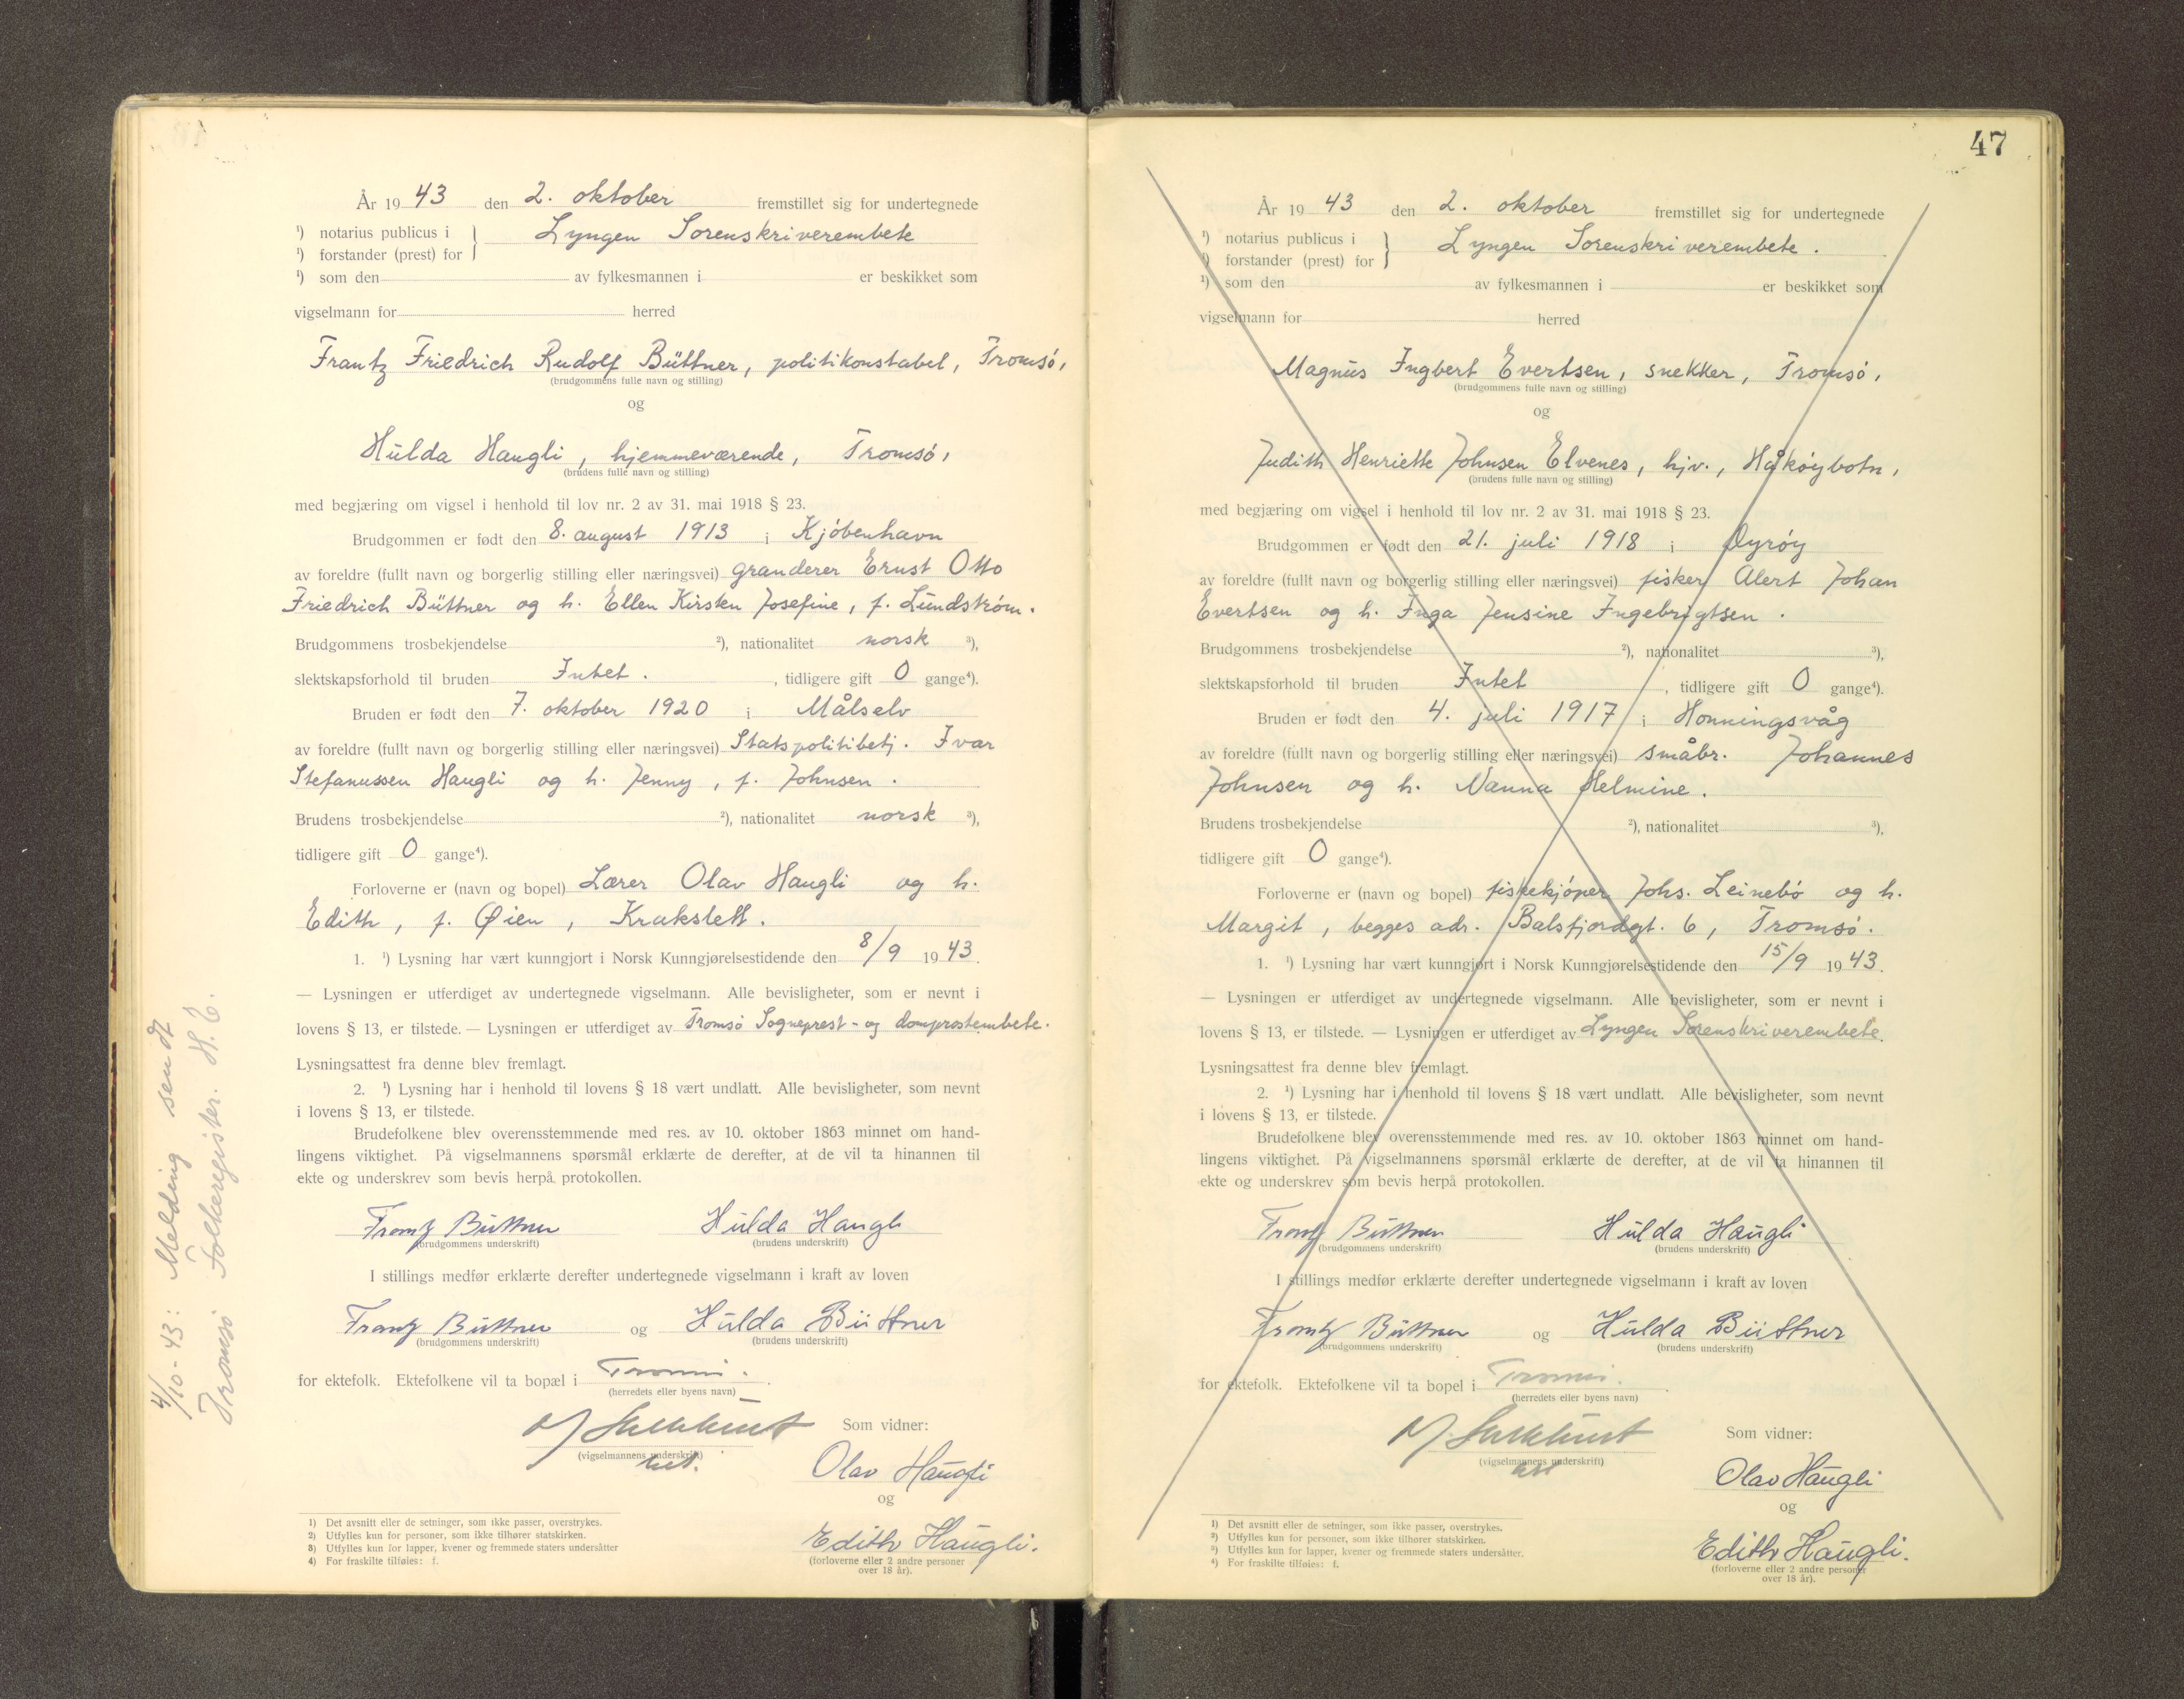 År 19 43 den 2. oktober fremstillet sig for undertegnede
¹) notarius publicus i } Lyngen Sorenskriverembete
¹) forstander (prest) for
¹) som den av fylkesmannen i er beskikket som
vigselmann for herred
Frantz Friedrich Rudolf Büttner, politikonstabel, Tromsö,
(brudgommens fulle navn og stilling)
og
Hulda Haugli, hjemmeværende, Tromsö,
(brudens fulle navn og stilling)
med begjæring om vigsel i henhold til lov nr. 2 av 31. mai 1918 § 23.
Brudgommen er født den 8. august 1913 i Kjöbenhavn
av foreldre (fullt navn og borgerlig stilling eller næringsvei) granderer Ernst Otto
Friedrich Büttner og h. Ellen Kirsten Josefine, f. Lundström.
Brudgommens trosbekjendelse ²), nationalitet norsk ³),
slektskapsforhold til bruden Intet. , tidligere gift 0 gange⁴).
Bruden er født den 7. oktober 1920 i Målselv
av foreldre (fullt navn og borgerlig stilling eller næringsvei) Statspolitibetj. Ivar
Stefanussen Haugli og h. Jenny, f. Johnsen.
Brudens trosbekjendelse ²), nationalitet norsk ³),
tidligere gift 0 gange⁴).
Forloverne er (navn og bopel) Lærer Olav Haugli og h.
Edith, f. Øien, Krakslett.
1. ¹) Lysning har vært kunngjort i Norsk Kunngjørelsestidende den 8/9 19 43.
— Lysningen er utferdiget av undertegnede vigselmann. Alle bevisligheter, som er nevnt i
lovens § 13, er tilstede. — Lysningen er utferdiget av Tromsö Sogneprest- og domprostembete.
Lysningsattest fra denne blev fremlagt.
2. ¹) Lysning har i henhold til lovens § 18 vært undlatt. Alle bevisligheter, som nevnt
i lovens § 13, er tilstede.
Brudefolkene blev overensstemmende med res. av 10. oktober 1863 minnet om hand-
lingens viktighet. På vigselmannens spørsmål erklærte de derefter, at de vil ta hinannen til
ekte og underskrev som bevis herpå protokollen.
Frantz Büttner Hulda Haugli
(brudgommens underskrift) (brudens underskrift)
I stillings medfør erklærte derefter undertegnede vigselmann i kraft av loven
Frantz Büttner og Hulda Büttner
(brudgommens underskrift) (brudens underskrift)
for ektefolk. Ektefolkene vil ta bopæl i Tromsö.
(herredets eller byens navn)
Som vidner:
(vigselmannens underskrift)
Olav Haugli
og
Edith Haugli.
(forloverne eller 2 andre personer
over 18 år).
1) Det avsnitt eller de setninger, som ikke passer, overstrykes.
2) Utfylles kun for personer, som ikke tilhører statskirken.
3) Utfylles kun for lapper, kvener og fremmede staters undersåtter
4) For fraskilte tilføies: f.
4/10-43: Melding sendt
Tromsö Folkeregister. H. E.
47
År 19 43 den 2. oktober fremstillet sig for undertegnede
¹) notarius publicus i } Lyngen Sorenskriverembete.
¹) forstander (prest) for
¹) som den av fylkesmannen i er beskikket som
vigselmann for herred
Magnus Ingbert Evertsen, snekker, Tromsö,
(brudgommens fulle navn og stilling)
og
Judith Henriette Johnsen Elvenes, hjv., Håköybotn,
(brudens fulle navn og stilling)
med begjæring om vigsel i henhold til lov nr. 2 av 31. mai 1918 § 23.
Brudgommen er født den 21. juli 1918 i Dyröy
av foreldre (fullt navn og borgerlig stilling eller næringsvei) fisker Alert Johan
Evertsen og h. Inga Jensine Ingebrigtsen.
Brudgommens trosbekjendelse ²), nationalitet ³),
slektskapsforhold til bruden Intet , tidligere gift 0 gange⁴).
Bruden er født den 4. juli 1917 i Honningsvåg
av foreldre (fullt navn og borgerlig stilling eller næringsvei) småbr. Johannes
Johnsen og h. Nanna Helmine.
Brudens trosbekjendelse ²), nationalitet ³),
tidligere gift 0 gange⁴).
Forloverne er (navn og bopel) fiskekjöper Johs. Leinebö og h.
Margit, begges adr. Balsfjordgt. 6, Tromsö.
1. ¹) Lysning har vært kunngjort i Norsk Kunngjørelsestidende den 15/9 19 43.
— Lysningen er utferdiget av undertegnede vigselmann. Alle bevisligheter, som er nevnt i
lovens § 13, er tilstede. — Lysningen er utferdiget av Lyngen Sorenskriverembete.
Lysningsattest fra denne blev fremlagt.
2. ¹) Lysning har i henhold til lovens § 18 vært undlatt. Alle bevisligheter, som nevnt
i lovens § 13, er tilstede.
Brudefolkene blev overensstemmende med res. av 10. oktober 1863 minnet om hand-
lingens viktighet. På vigselmannens spørsmål erklærte de derefter, at de vil ta hinannen til
ekte og underskrev som bevis herpå protokollen.
Frantz Büttner Hulda Haugli
(brudgommens underskrift) (brudens underskrift)
I stillings medfør erklærte derefter undertegnede vigselmann i kraft av loven
Frantz Büttner og Hulda Büttner
(brudgommens underskrift) (brudens underskrift)
for ektefolk. Ektefolkene vil ta bopel i Tromsö.
(herredets eller byens navn)
Som vidner:
(vigselmannens underskrift)
Olav Haugli
og
Edith Haugli.
(forloverne eller 2 andre personer
over 18 år).
1) Det avsnitt eller de setninger, som ikke passer, overstrykes.
2) Utfylles kun for personer, som ikke tilhører statskirken.
3) Utfylles kun for lapper, kvener og fremmede staters undersåtter.
4) For fraskilte tilføies: f.